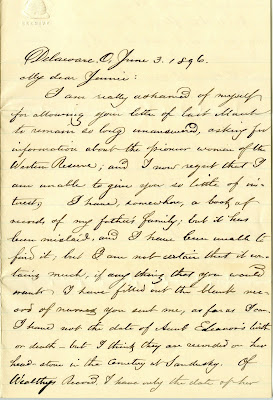 Delaware, O, June 3. 1896.
My dear Jennie:
I am really ashamed of myself
for allowing your letter of last March
to remain so long unanswered, asking for
information about the pioneer women of the
Western Reserve; and I now regret that I
am unable to give you so little of in-
terest. I have, somewhere, a book of
records of my father's family; but it has
been mislaid, and I have been unable to
find it; but I am not certain that it con-
tains much, if any thing that you would
want. I have filled out the blank rec-
ord of you sent me, as far as I can.
I have not the date of Aunt Eleanor's birth
or death - but I think they are recorded on her
head-stone in the Cemetery at Sandusky. Of
Wealthy's Record, I have only the date of her